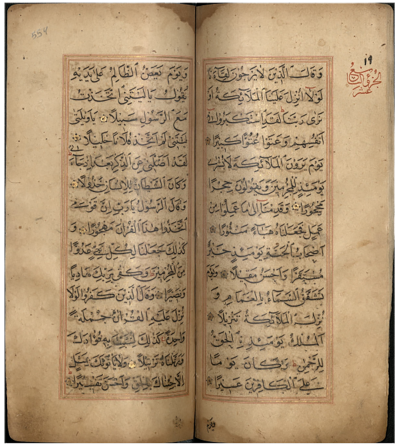 ١٩
وقال الذين لا يرجون لقاءنا
لولا انزل علينا الملائكة او
نرى ربنا لقد استكبروا في
انفسهم وعتوا عتوا كبيرا
يوم يرون الملائكة لا بشرى
يومئذ للمجرمين ويقولون حجرا
محجورا وقدمنا الى ما عملوا من
عمل فجعلناه هباء منثورا
اصحاب الجنة يومئذ خير
مستقرا واحسن مقيلا ويوم
تشقق السماء بالغمام و
نزل الملائكة تنزيلا
الملك يومئذ الحق
للرحمن وكان يوما
على الكافرين عسيرا
ويوم يعض الظالم على يديه
يقول يا ليتني اتخذت
مع الرسول سبيلا يا ويلتى
ليتني لم اتخذ فلانا خليلا
لقد اضلني عن الذكر بعد اذ جاءني
وكان الشيطان للانسان خذولا
وقال الرسول يا رب ان قومي
اتخذوا هذا القرآن مهجورا و
كذلك جعلنا لكل نبي عدوا
من المجرمين وكفى بربك هاديا
ونصيرا وقال الذين كفروا لولا
نزل عليه القرآن جملة
واحدة كذلك لنثبت به فؤادك
ورتلناه ترتيلا ولا يأتونك بمثل
الا جئناك بالحق واحسن تفسيرا